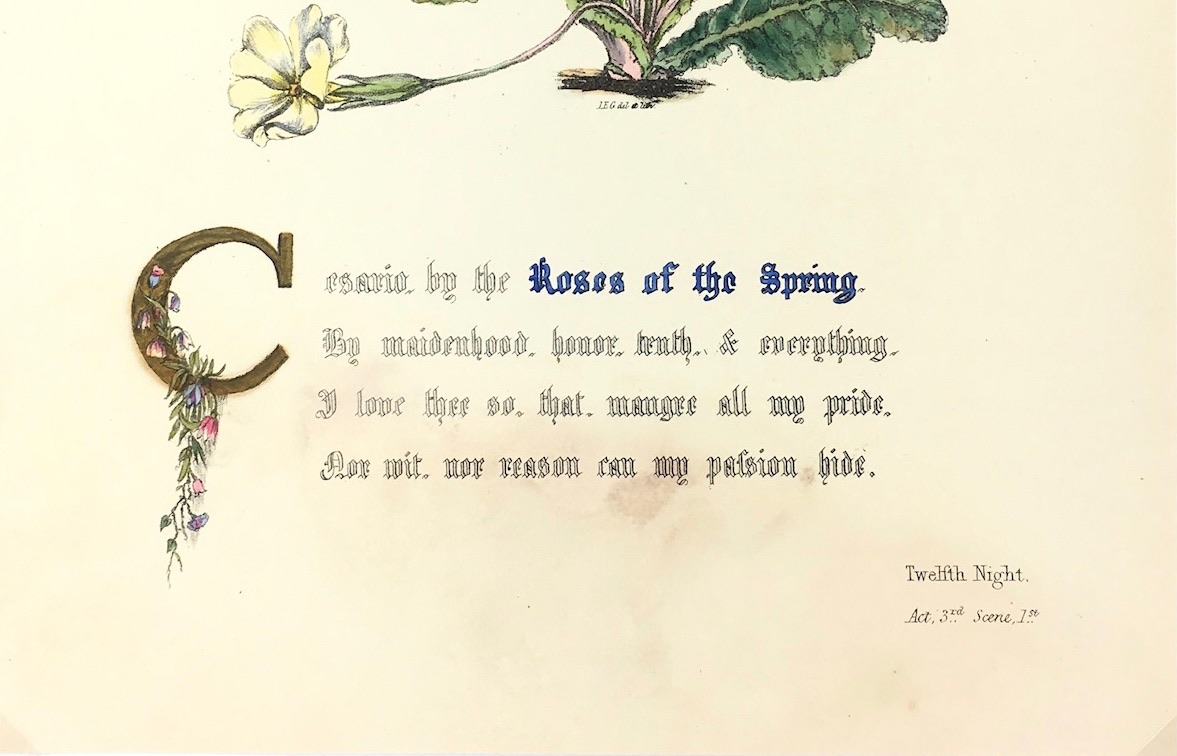 J.E.G del et lith
Cesario, by the Roses of the Spring,
By maidenhood, honor, truth, & everything,
I love thee so, that, maugre all my pride,
Nor wit, nor reason can my paſsion hide.
Twelfth Night.
Act, 3rd Scene, 1st